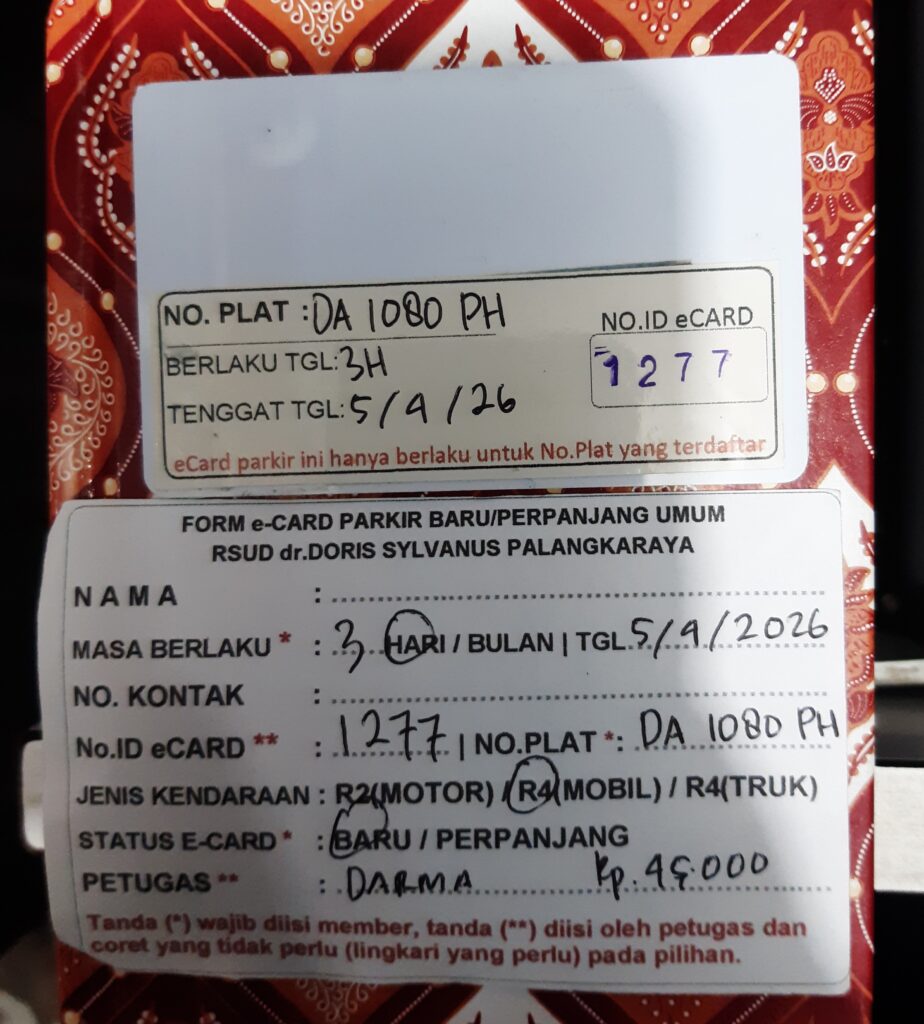 NO. PLAT : DA 1080 PH
NO.ID eCARD
1277
BERLAKU TGL: 3H
TENGGAT TGL: 5/4/26
eCard parkir ini hanya berlaku untuk No.Plat yang terdaftar
FORM e-CARD PARKIR BARU/PERPANJANG UMUM
RSUD dr.DORIS SYLVANUS PALANGKARAYA
N A M A :
MASA BERLAKU * : 3 HARI / BULAN | TGL. 5/4/2026
NO. KONTAK :
No.ID eCARD ** : 1277 | NO.PLAT *: DA 1080 PH
JENIS KENDARAAN : R2(MOTOR) / R4(MOBIL) / R4(TRUK)
STATUS E-CARD * : BARU / PERPANJANG
PETUGAS ** : DARMA Rp. 45.000
Tanda (*) wajib diisi member, tanda (**) diisi oleh petugas dan
coret yang tidak perlu (lingkari yang perlu) pada pilihan.